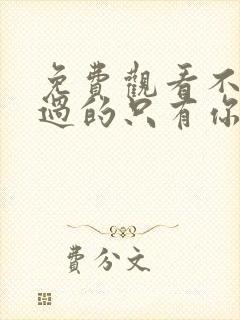 免費觀看不
過的只有你
費分文